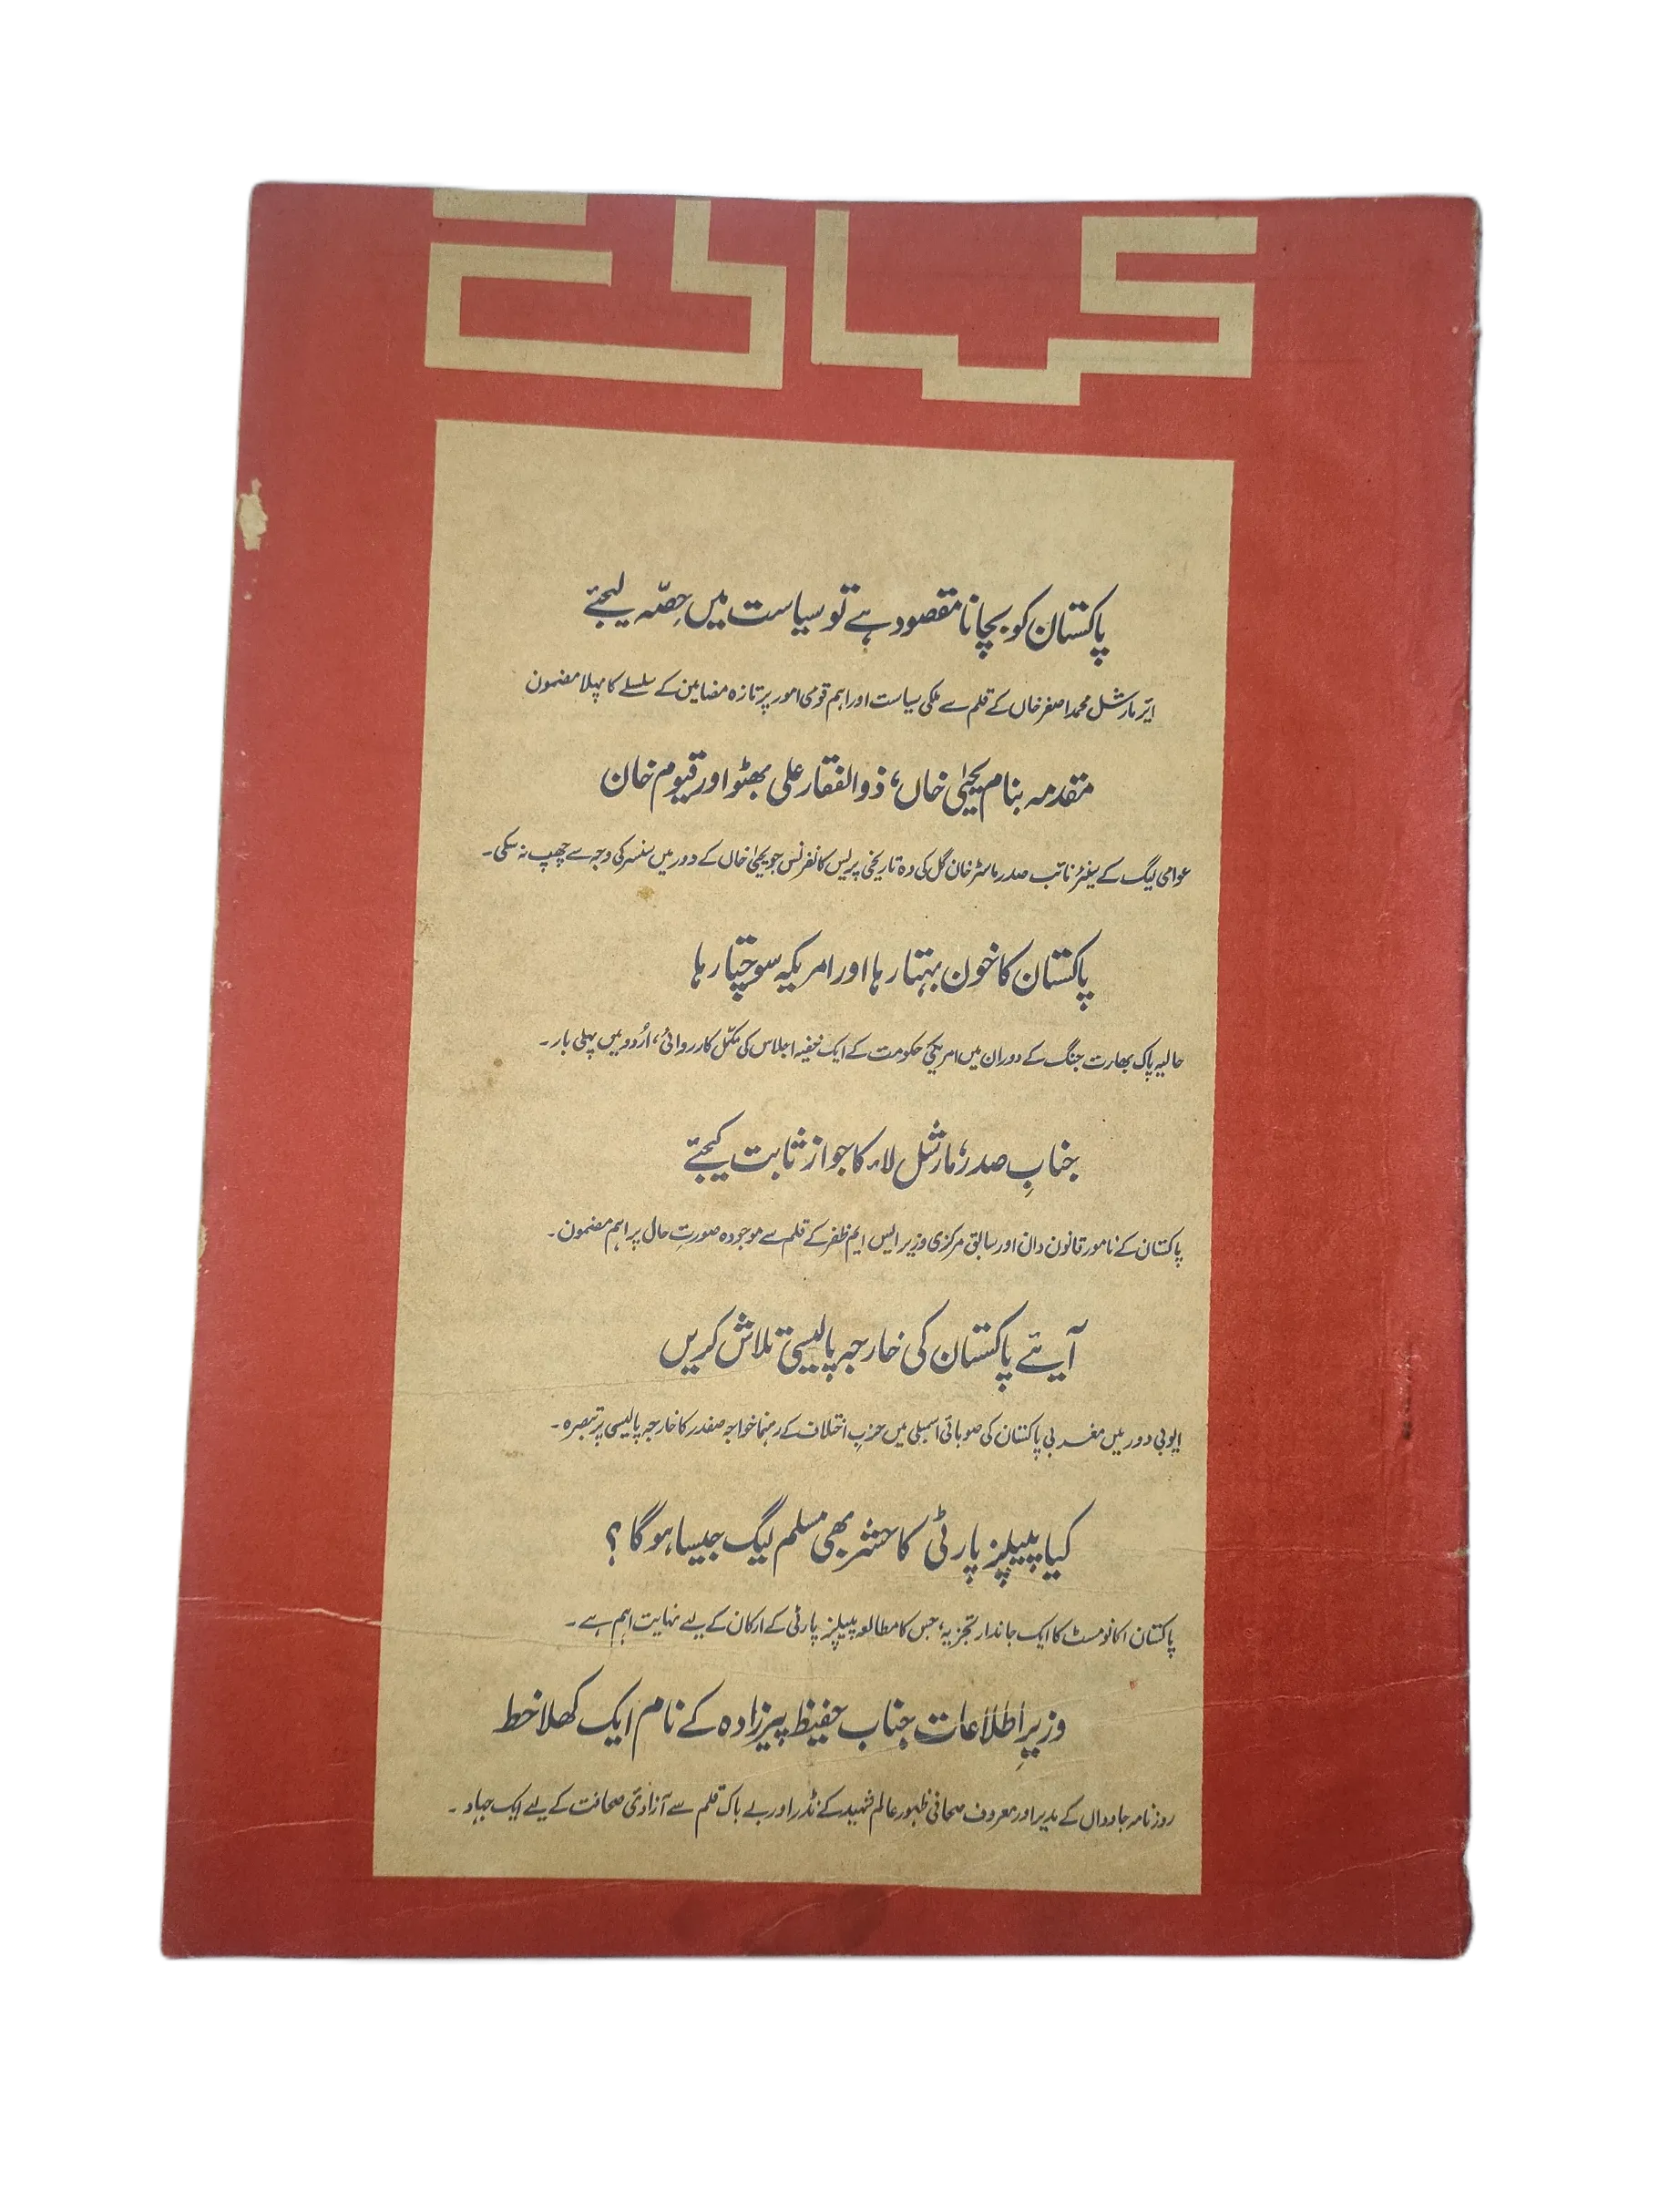 کہانی
پاکستان کو بچانا مقصود ہے تو سیاست میں حِصّہ لیجئے
ایئر مارشل محمد اصغر خاں کے قلم سے ملکی سیاست اور اہم قومی امور پر تازہ مضامین کے سلسلے کا پہلا مضمون
مقدمہ بنام یحییٰ خاں، ذوالفقار علی بھٹو اور قیوم خان
عوامی لیگ کے سینئر نائب صدر ماسٹر خان گل کی وہ تاریخی پریس کانفرنس جو یحییٰ خاں کے دور میں سنسر کی وجہ سے چھپ نہ سکی۔
پاکستان کا خون بہتا رہا اور امریکہ سوچتا رہا
حالیہ پاک بھارت جنگ کے دوران میں امریکی حکومت کے ایک خفیہ اجلاس کی مکمّل کارروائی، اُردو میں پہلی بار۔
جنابِ صدر، مارشل لاء کا جواز ثابت کیجئے
پاکستان کے نامور قانون دان اور سابق مرکزی وزیر ایس ایم ظفر کے قلم سے موجودہ صورتِ حال پر اہم مضمون۔
آیئے پاکستان کی خارجہ پالیسی تلاش کریں
ایوبی دور میں مغربی پاکستان کی صوبائی اسمبلی میں حزبِ اختلاف کے رہنما خواجہ صفدر کا خارجہ پالیسی پر تبصرہ۔
کیا پیپلز پارٹی کا حشر بھی مسلم لیگ جیسا ہو گا؟
پاکستان اکانومسٹ کا ایک جاندار تجزیہ، جس کا مطالعہ پیپلز پارٹی کے ارکان کے لیے نہایت اہم ہے۔
وزیرِ اطلاعات جناب حفیظ پیرزادہ کے نام ایک کھلا خط
روزنامہ جاوداں کے مدیر اور معروف صحافی ظہور عالم شہید کے نڈر اور بے باک قلم سے آزادیٔ صحافت کے لیے ایک جہاد۔